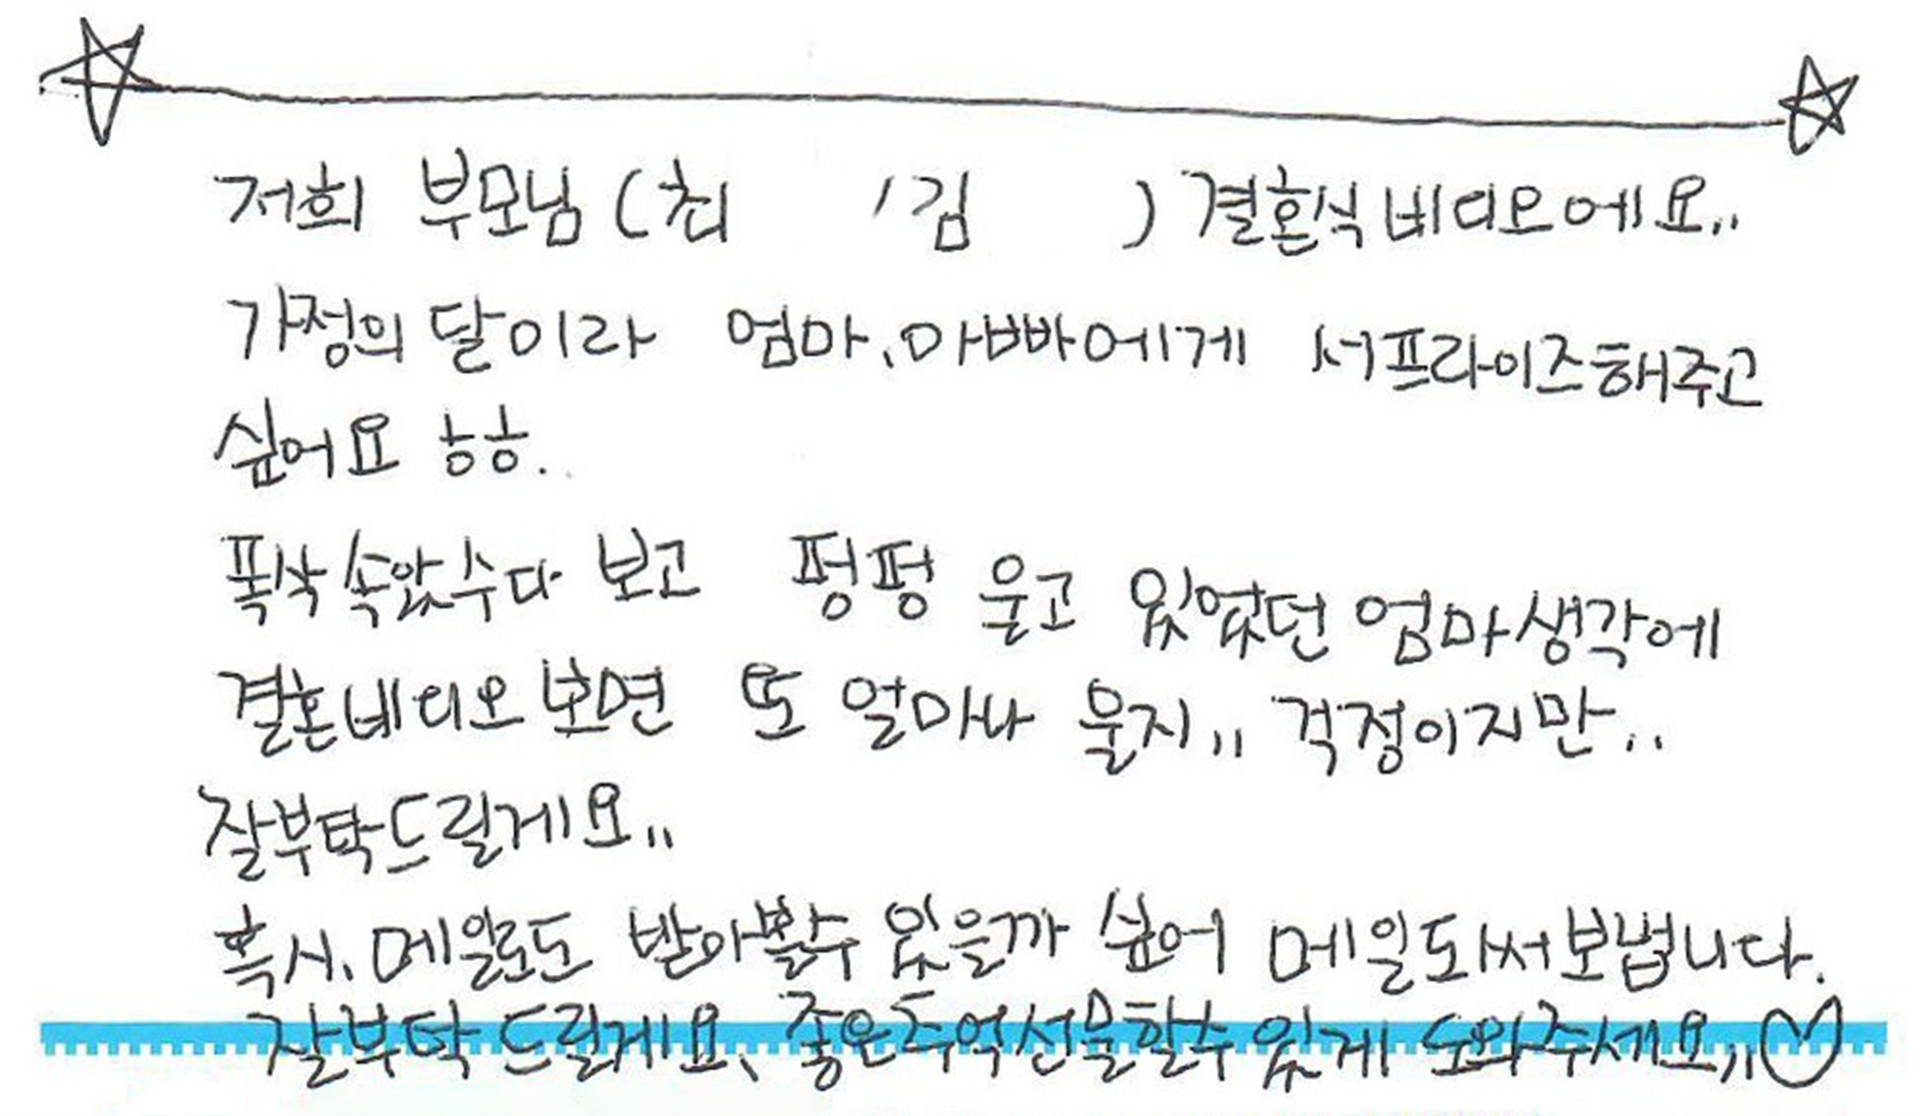 저희 부모님 (최 / 김 ) 결혼식 비디오에요..
가정의 달이라 엄마, 아빠에게 서프라이즈해주고
싶어요 ㅎㅎ.
폭삭 속았수다 보고 펑펑 울고 있었던 엄마 생각에
결혼비디오 보면 또 얼마나 울지.. 걱정이지만..
잘부탁드릴게요..
혹시, 메일로도 받아볼수 있을까 싶어 메일도 써보냅니다.
잘부탁 드릴게요, 좋은추억선물할수 있게 도와주세요..♡